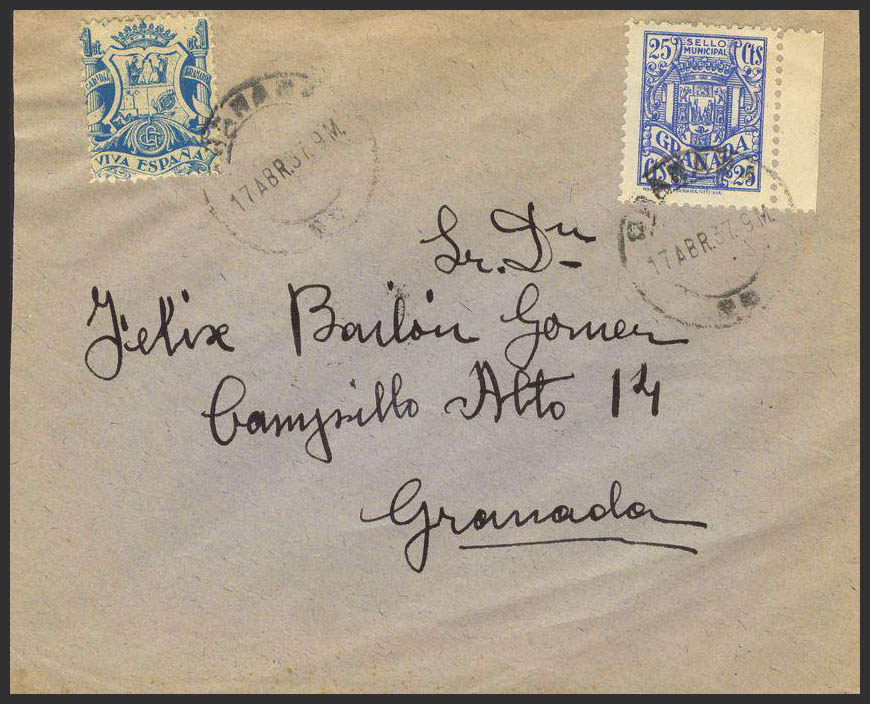 1 ct. 1 ct.
VIVA ESPAÑA
25 SELLO MUNICIPAL Cts
GRANADA
Cts 25
17 ABR.37.9M.
17 ABR.37.9M.
Sr. Dn
Felix Bailón Gomez
Campillo Alto 14
Granada